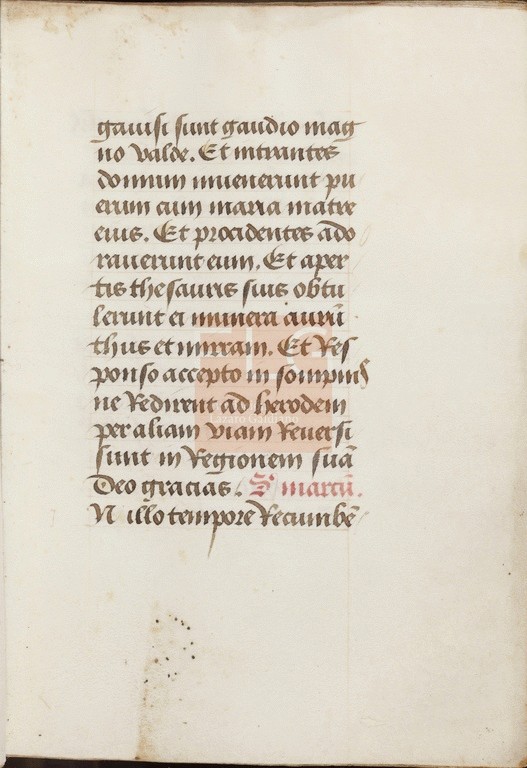 gauisi sunt gaudio mag
no valde. Et intrantes
domum inuenerunt pu
erum cum maria matre
eius. Et procidentes ado
rauerunt eum. Et aper
tis thesauris suis obtu
lerunt ei munera aurū
thus et mirram. Et Res
ponso accepto in sompnis
ne Redirent ad herodem
per aliam viam Reuersi
sunt in Regionem suā
Deo gracias. S marcū.
N illo tempore Recumbē
FLG
Lázaro Galdiano